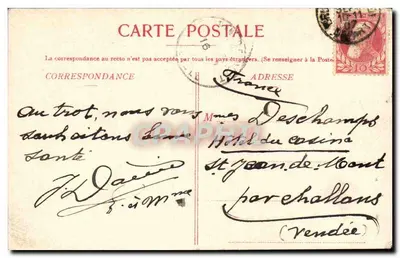 CARTE POSTALE
La correspondance au recto n'est pas acceptée par tous les pays étrangers. (Se renseigner à la Poste.)
CORRESPONDANCE
ADRESSE
France
Au trot, nous vous
souhaitons bonne
santé
M mes Deschamps
Hotel du Casino
St Jean de Mont
par challans
(Vendée)
et Mme